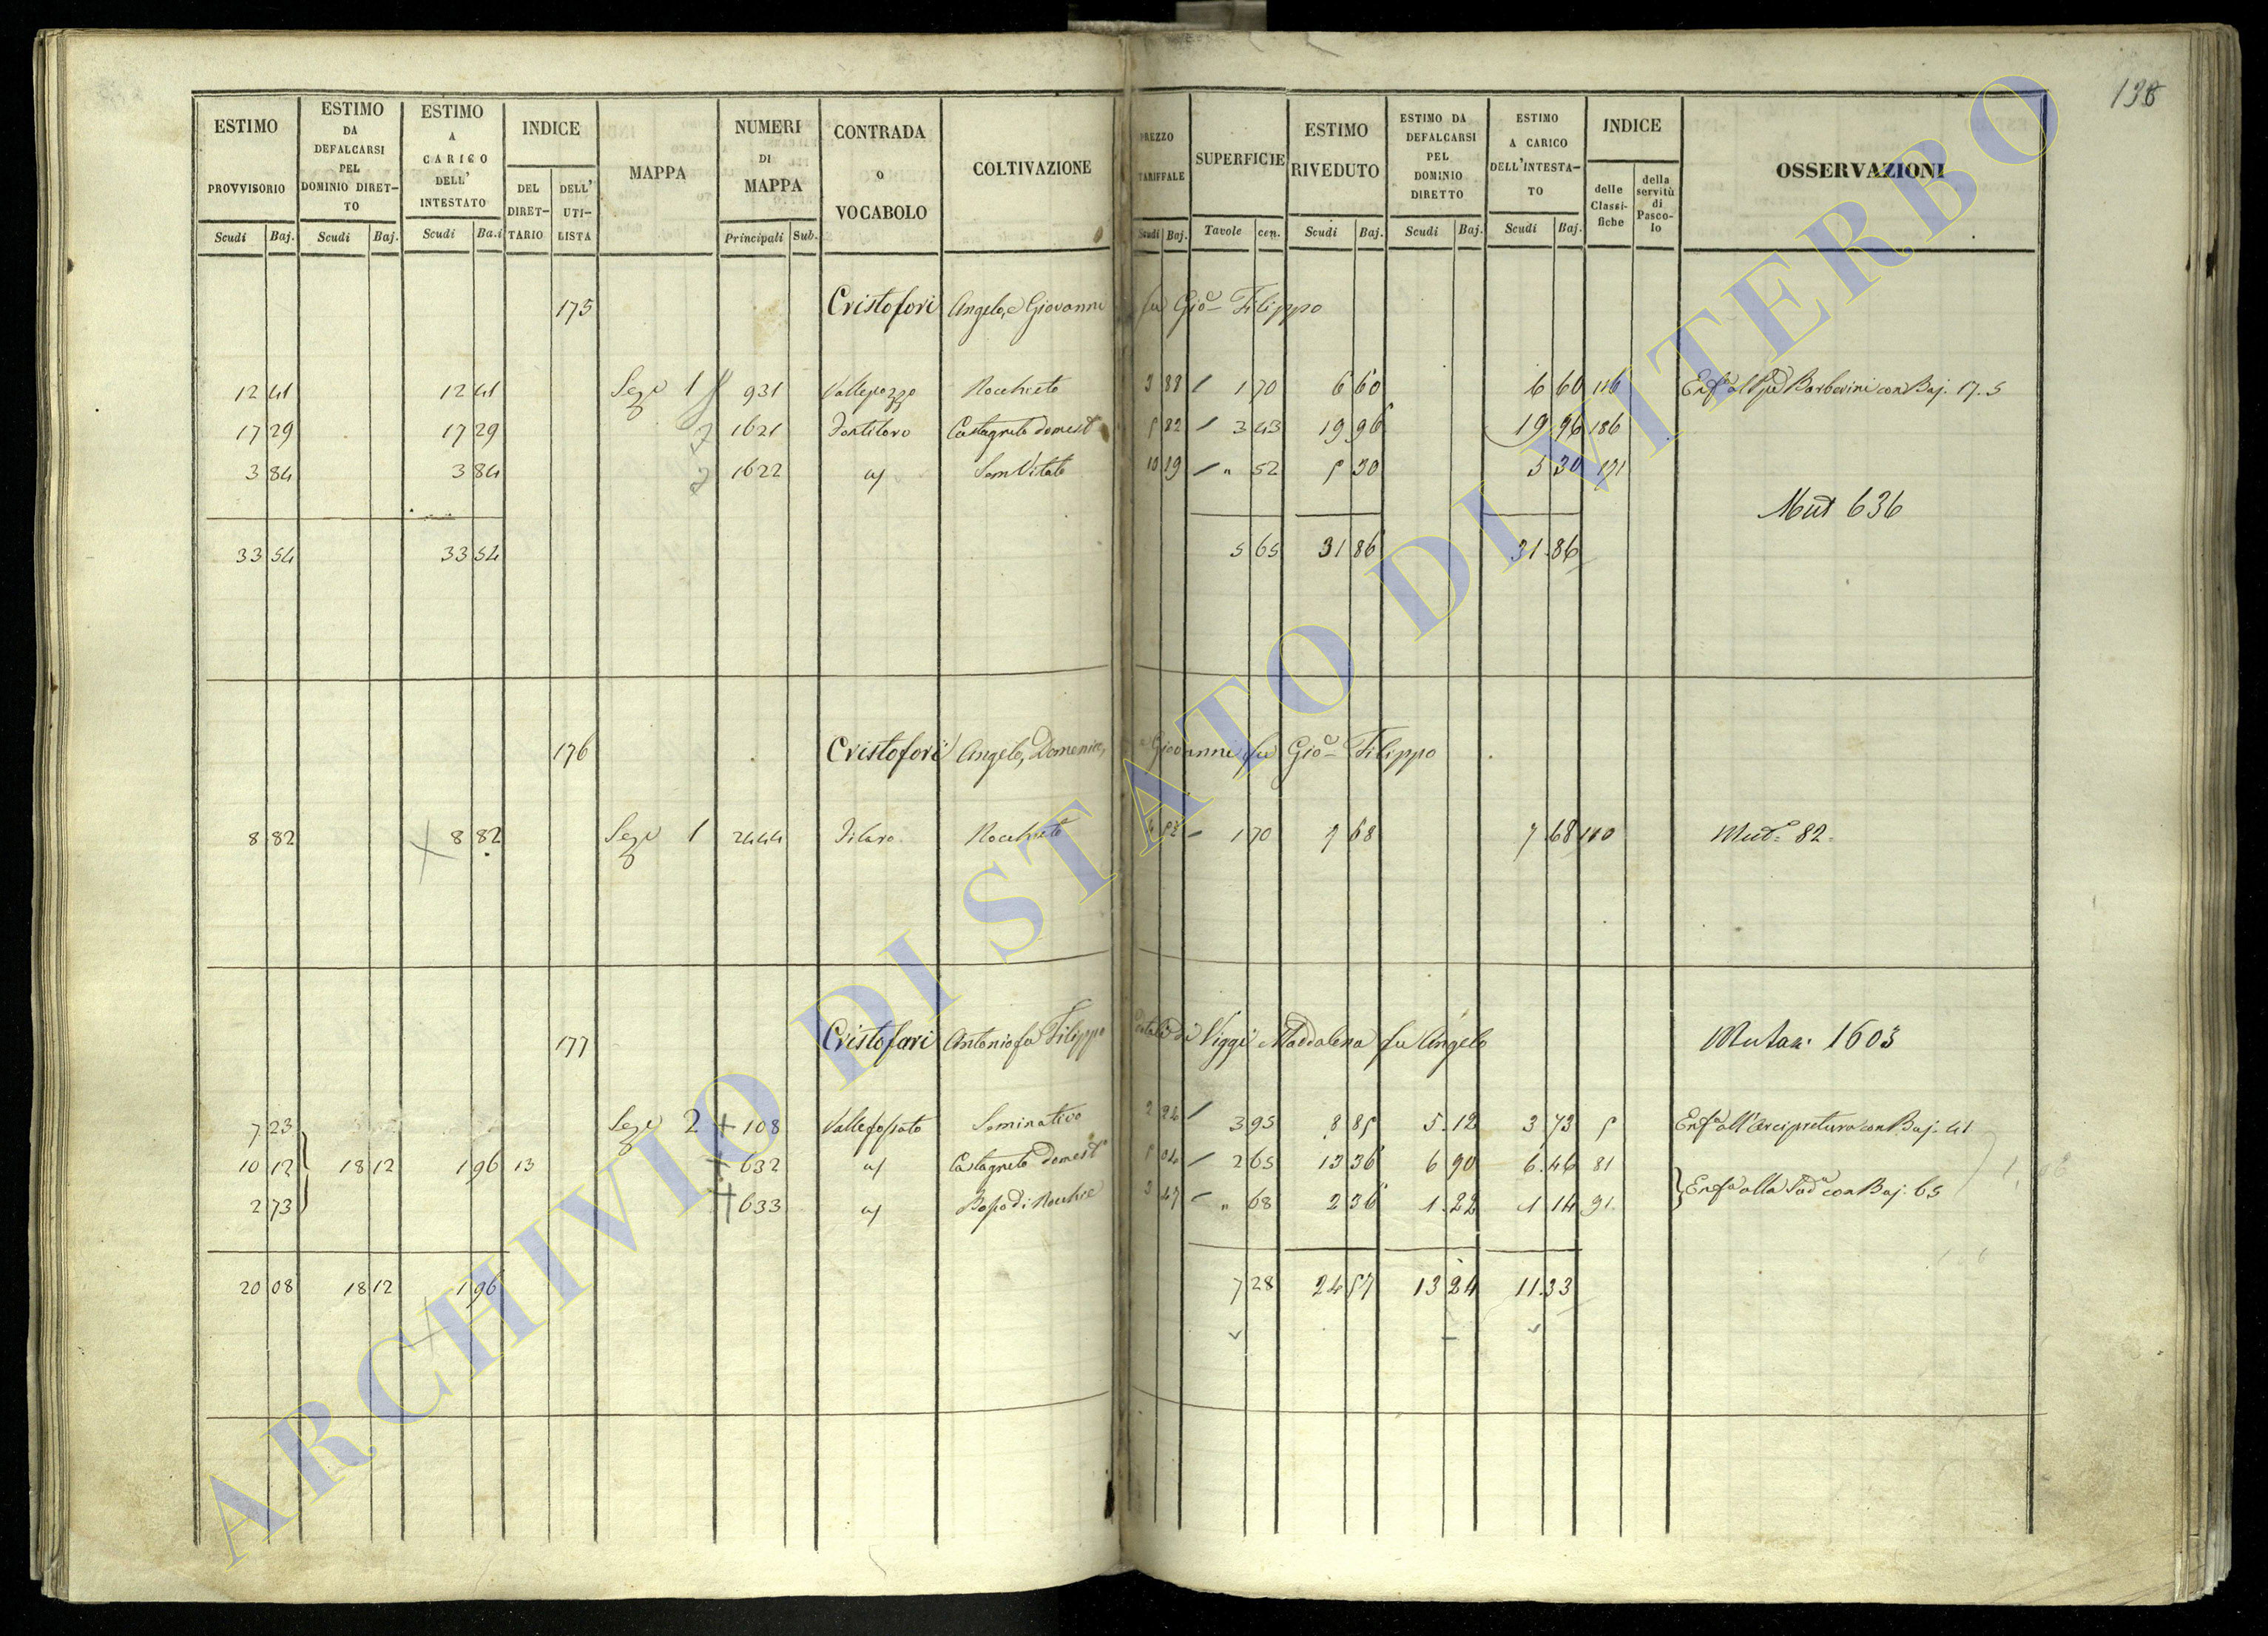 138
ESTIMO PROVVISORIO
ESTIMO DA DEFALCARSI PEL DOMINIO DIRETTO
ESTIMO A CARICO DELL' INTESTATO
INDICE
DEL DIRETTARIO
DELL' UTILISTA
MAPPA
NUMERI DI MAPPA
CONTRADA O VOCABOLO
COLTIVAZIONE
PREZZO TARIFFALE
SUPERFICIE
ESTIMO RIVEDUTO
ESTIMO DA DEFALCARSI PEL DOMINIO DIRETTO
ESTIMO A CARICO DELL'INTESTATO
INDICE
delle Classifiche
della servitù di Pascolo
OSSERVAZIONI
Scudi Baj. Scudi Baj. Scudi Ba.i Principali Sub. Scudi Baj. Tavole cen. Scudi Baj. Scudi Baj. Scudi Baj.
175 Cristofori Angelo, e Giovanni fu Gio Filippo
12 41 12 41 Seze 1 931 Vallepozzo Nocchieto 3 88 1 70 6 60 6 60 116 Enfa al Barberini con Baj. 17.5
17 29 17 29 1621 Castagneto domest 5 82 3 43 19 96 19 96 186
3 84 3 84 1622 a/ Sem Vitato 10 19 " 52 5 30 5 30 171
Mut 636
33 54 33 54 5 65 31 86 31 86
176 Cristofori Angelo, Domenico, e Giovanni fu Gio Filippo
8 82 8 82 Seze 1 2444 Filaro Nocchieto 4 52 1 70 7 68 7 68 110 Mut. 82
177 Cristofari Antonio fu Filippo di Viggi Maddalena fu Angelo Mutaz. 1603
7 23 Seze 2 108 Vallefossato Seminativo 2 24 3 95 8 85 5 12 3 73 5 Enfa all'Arcipretura con Baj. 41
10 12 18 12 1 96 13 632 a/ Castagneto domest 5 04 2 65 13 36 6 90 6 46 81
2 73 633 a/ Bosco di Nocchie 3 47 " 68 2 36 1 22 1 14 91 Enfa alla Sud con Baj. 65
20 08 18 12 1 96 7 28 24 57 13 24 11 33
ARCHIVIO DI STATO DI VITERBO